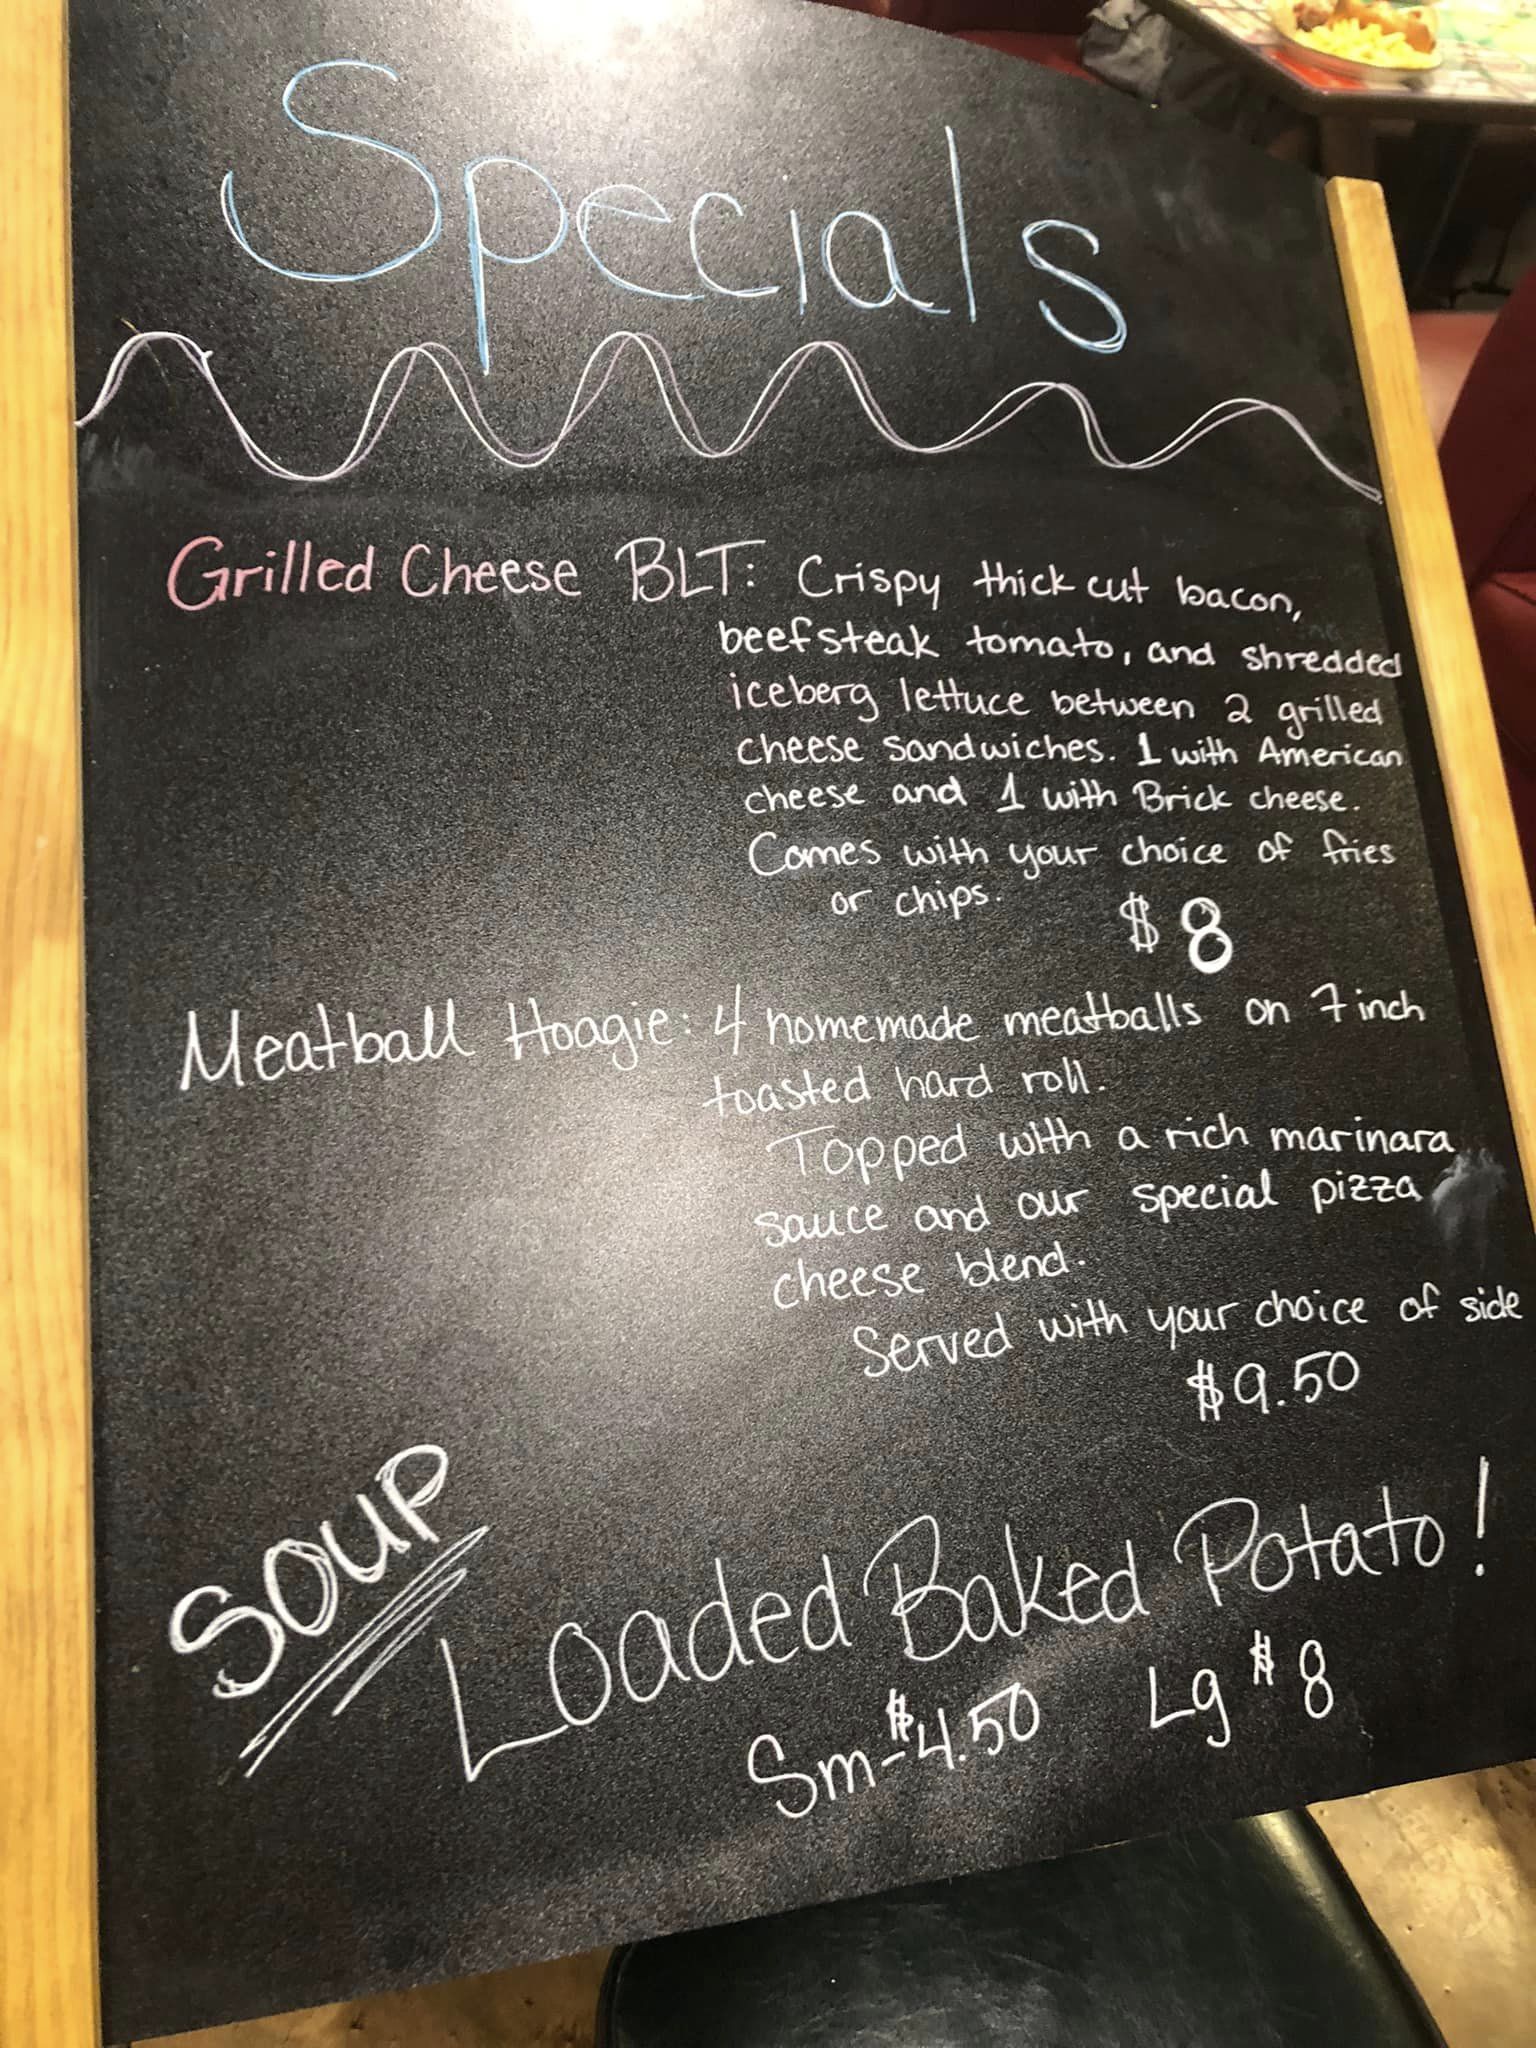 Specials
Grilled Cheese BLT: Crispy thick cut bacon,
beefsteak tomato, and shredded
iceberg lettuce between 2 grilled
cheese sandwiches. 1 with American
cheese and 1 with Brick cheese.
Comes with your choice of fries
or chips.
$8
Meatball Hoagie: 4 homemade meatballs on 7 inch
toasted hard roll.
Topped with a rich marinara
sauce and our special pizza
cheese blend.
Served with your choice of side
$9.50
SOUP
Loaded Baked Potato!
Sm-$4.50 Lg $8